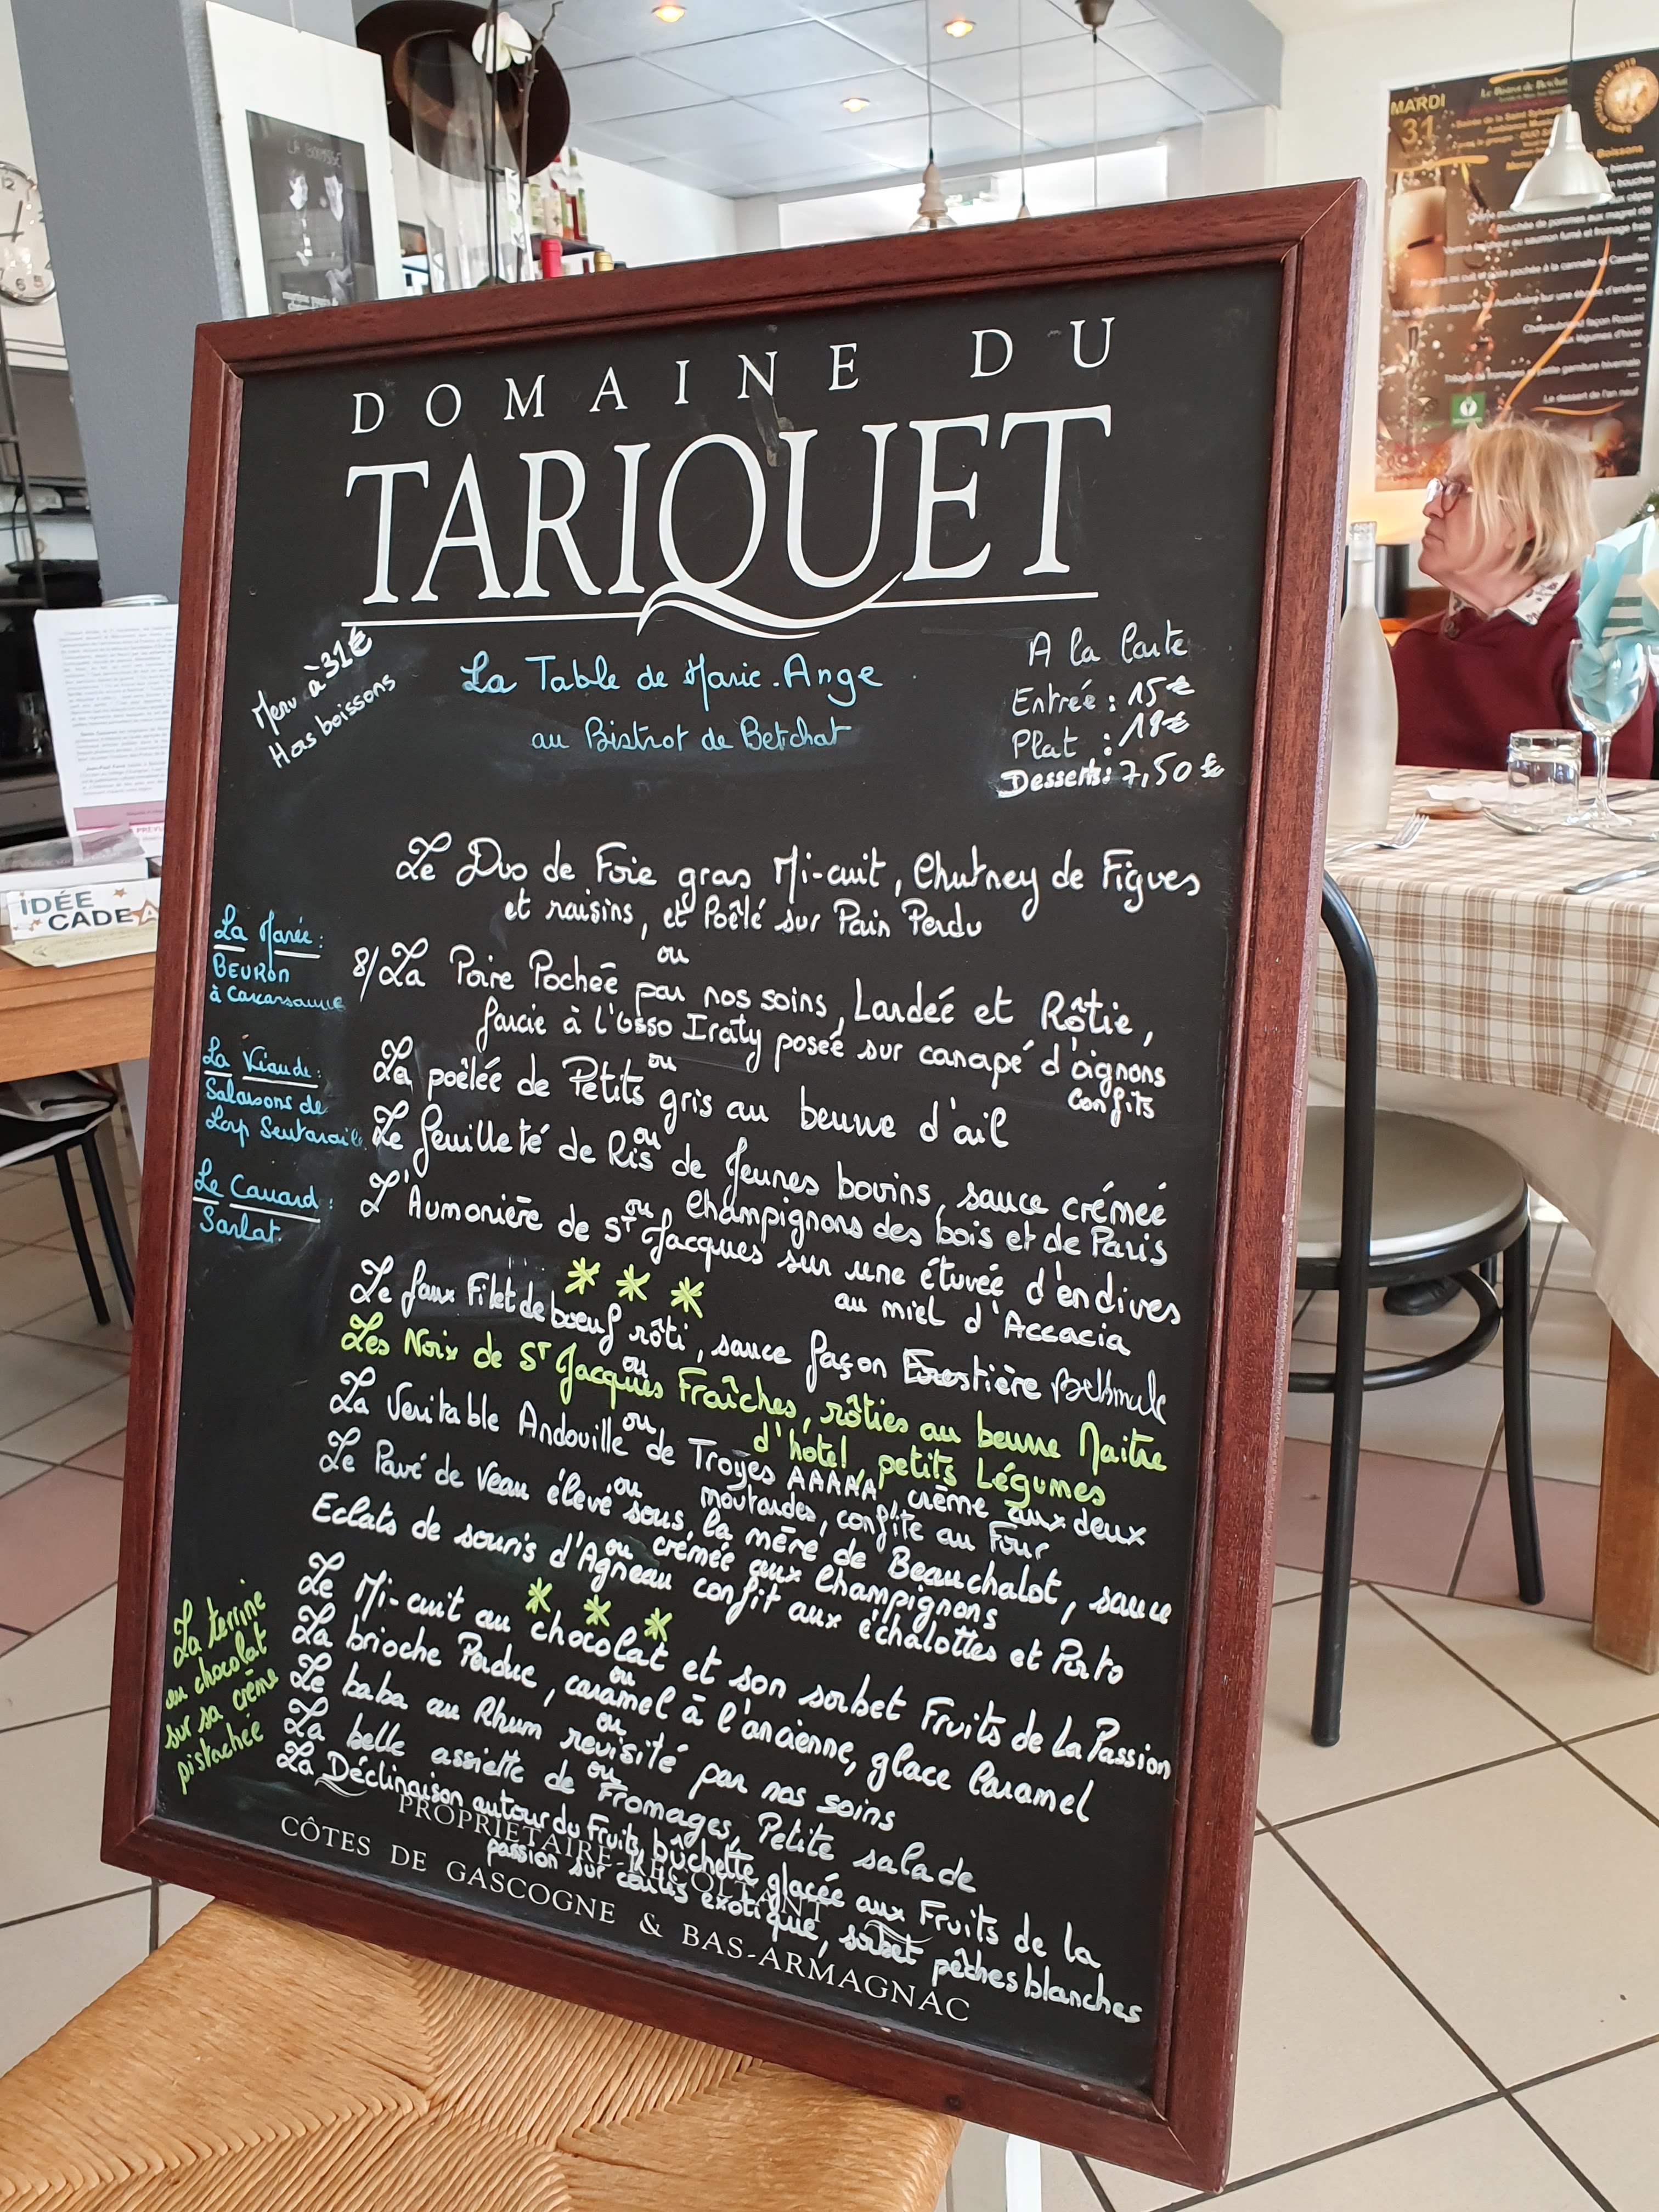 DOMAINE DU
TARIQUET
Menu à 31€
Hors boissons
La Table de Marie.Ange
au Bistrot de Betchat
A la Carte
Entrée : 15€
Plat : 18€
Desserts : 7,50€
Le Duo de Foie gras Mi-cuit, Chutney de Figues
et raisins, et Poêlé sur Pain Perdu
ou
8/La Poire Pochée par nos soins, Lardée et Rôtie,
farcie à l'Osso Iraty posée sur canapé d'oignons
confits
ou
La poêlée de Petits gris au beurre d'ail
ou
Le feuilleté de Ris de Jeunes bovins, sauce crémée
Champignons des bois et de Paris
ou
L'Aumonière de ST Jacques sur une étuvée d'endives
au miel d'Accacia
* * *
Le faux Filet de boeuf rôti, sauce façon Forestière
ou
Les Noix de ST Jacques Fraîches, rôties au beurre Maitre
d'hôtel, petits Légumes
ou
La Veritable Andouille de Troyes AAAAA, crème aux deux
moutardes, confite au Four
ou
Le Pavé de Veau élevé sous la mère de Beauchalot, sauce
crémée aux Champignons
ou
Eclats de souris d'Agneau confit aux échalottes et Porto
* * *
Le Mi-cuit au chocolat et son sorbet Fruits de La Passion
ou
La brioche Perdue, caramel à l'ancienne, glace Caramel
ou
Le baba au Rhum revisité par nos soins
ou
La belle assiette de Fromages, Petite salade
La Déclinaison autour du Fruit, bûchette glacée aux Fruits de la
passion sur coulis exotique, sorbet pêches blanches
PROPRIÉTAIRE-RÉCOLTANT
CÔTES DE GASCOGNE & BAS-ARMAGNAC
La Marée :
BEURON
à Carcarsanne
La Viande :
Salaisons de
Le Canard :
Sarlat.
La terrine
au chocolat
sur sa crème
pistachée
IDÉE
CADEA
MARDI
31
Le Bistrot de Betchat
Boissons
Le dessert de l'an neuf
12
6
5